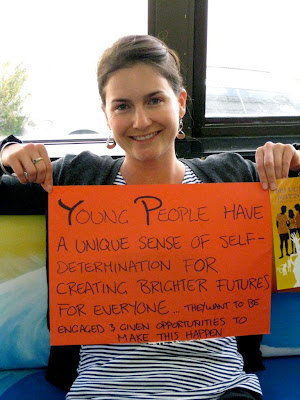 YOUNG PEOPLE HAVE
A UNIQUE SENSE OF SELF-
DETERMINATION FOR
CREATING BRIGHTER FUTURES
FOR EVERYONE... THEY WANT TO BE
ENGAGED & GIVEN OPPORTUNITIES TO
MAKE THIS HAPPEN